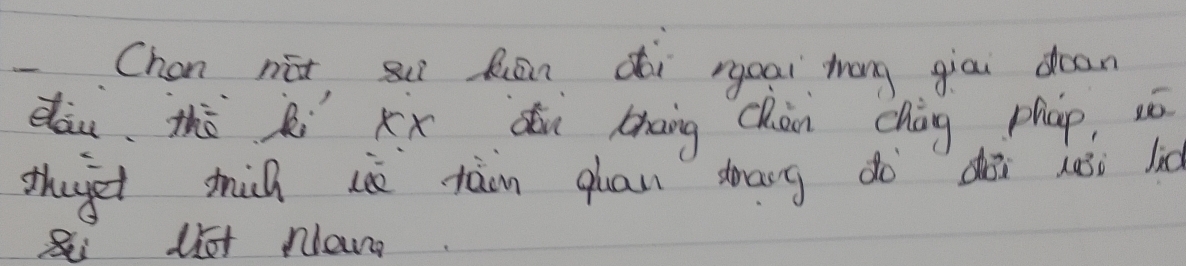 - Chọn một sự kiện đối ngoại trong giai đoạn
đầu thế kỉ XX đến kháng chiến chống pháp, và
thuyết trình về tầm quan trọng đó đối với lịch
sử Việt Nam.